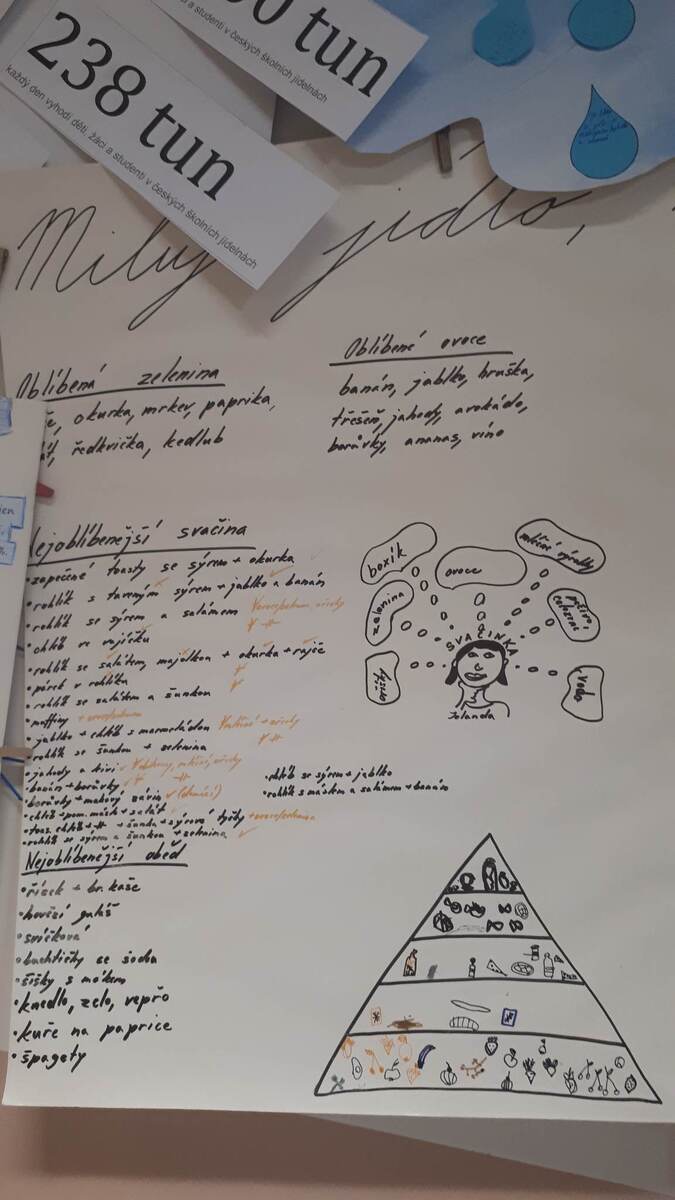 0 tun
a studenti v českých školních jídelnách
238 tun
každý den vyhodí děti, žáci a studenti v českých školních jídelnách
Miluj jídlo,
Oblíbená zelenina
okurka, mrkev, paprika,
ředkvička, kedlub
Oblíbené ovoce
banán, jablko, hruška,
třešeň, jahody, avokádo,
borůvky, ananas, víno
Nejoblíbenější svačina
•zapečené toasty se sýrem + okurka
•rohlík s taveným sýrem + jablko a banán
•rohlík se sýrem a salámem
•chléb ve vajíčku
•rohlík se salátem, majolkou + okurka + rajče
•párek v rohlíku
•rohlík se salátem a šunkou
•muffiny
•jablko + chléb s marmeládou
•rohlík se šunkou + zelenina
•jahody a kivi
•banán + borůvky
•borůvky + makový závin (domácí)
•chléb + pom. másl. + salát
•rohlík se sýrem a šunkou + zelenina
•chléb se sýrem + jablko
•rohlík s máslem a salámem + banán
boxík
ovoce
mléčné výrobky
zelenina
pečivo,
voda
SVAČINKA
Jolanda
Nejoblíbenější oběd
•řízek + br. kaše
•hovězí guláš
•svíčková
•buchtičky se šodo
•šišky s mákem
•knedlo, zelo, vepřo
•kuře na paprice
•špagety